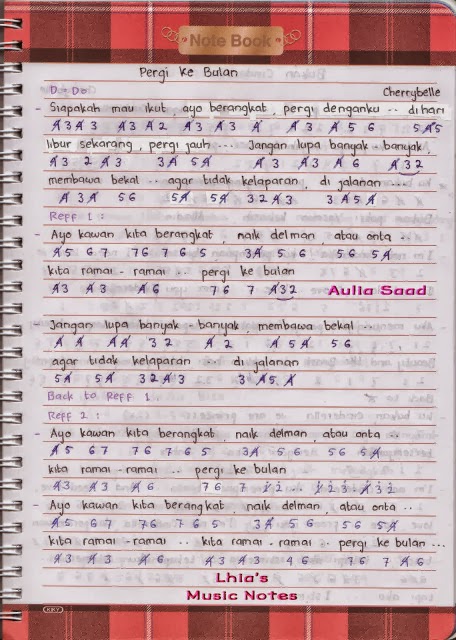 Note Book
Pergi ke Bulan
D = Do Cherrybelle
- Siapakah mau ikut, ayo berangkat, pergi denganku .. di hari
4̸3 4̸3 4̸3 4̸2 4̸3 4̸3 4̸ 4̸3 4̸ 5 6 5 4̸5
libur sekarang, pergi jauh .... Jangan lupa banyak-banyak,
4̸3 2 4̸3 34̸ 54̸ 4̸3 4̸3 4̸6 4̸32
membawa bekal .. agar tidak kelaparan, di jalanan ....
4̸ 34̸ 56 54̸ 54̸ 324̸3 34̸54̸
Reff 1 :
- Ayo kawan kita berangkat, naik delman, atau onta ..
4̸5 67 76 7 6 5 34̸ 5 6 56 54̸
kita ramai-ramai .. pergi ke bulan
4̸3 4̸3 4̸6 76 7 4̸32 Aulia Saad
- Jangan lupa banyak-banyak membawa bekal ...
4̸ 4̸ 4̸4̸ 32 4̸2 4̸54̸ 56
agar tidak kelaparan .. di jalanan
54̸ 54̸ 324̸3 34̸54̸
Back to Reff 1
Reff 2 :
- Ayo kawan kita berangkat, naik delman, atau onta ..
4̸5 67 76 7 6 5 34̸ 5 6 56 54̸
kita ramai-ramai .. pergi ke bulan
4̸3 4̸3 4̸6 76 7 1̇2̇ .. 1̇2̇3̇ 4̸32
- Ayo kawan kita berangkat, naik delman, atau onta ..
4̸5 67 76 7 6 5 34̸ 5 6 56 54̸
kita ramai-ramai .. kita ramai-ramai .. pergi ke bulan ...
4̸3 4̸3 4̸6 4̸3 4̸3 46 76 7 4̸6
Lhia's
Music Notes
KIKY